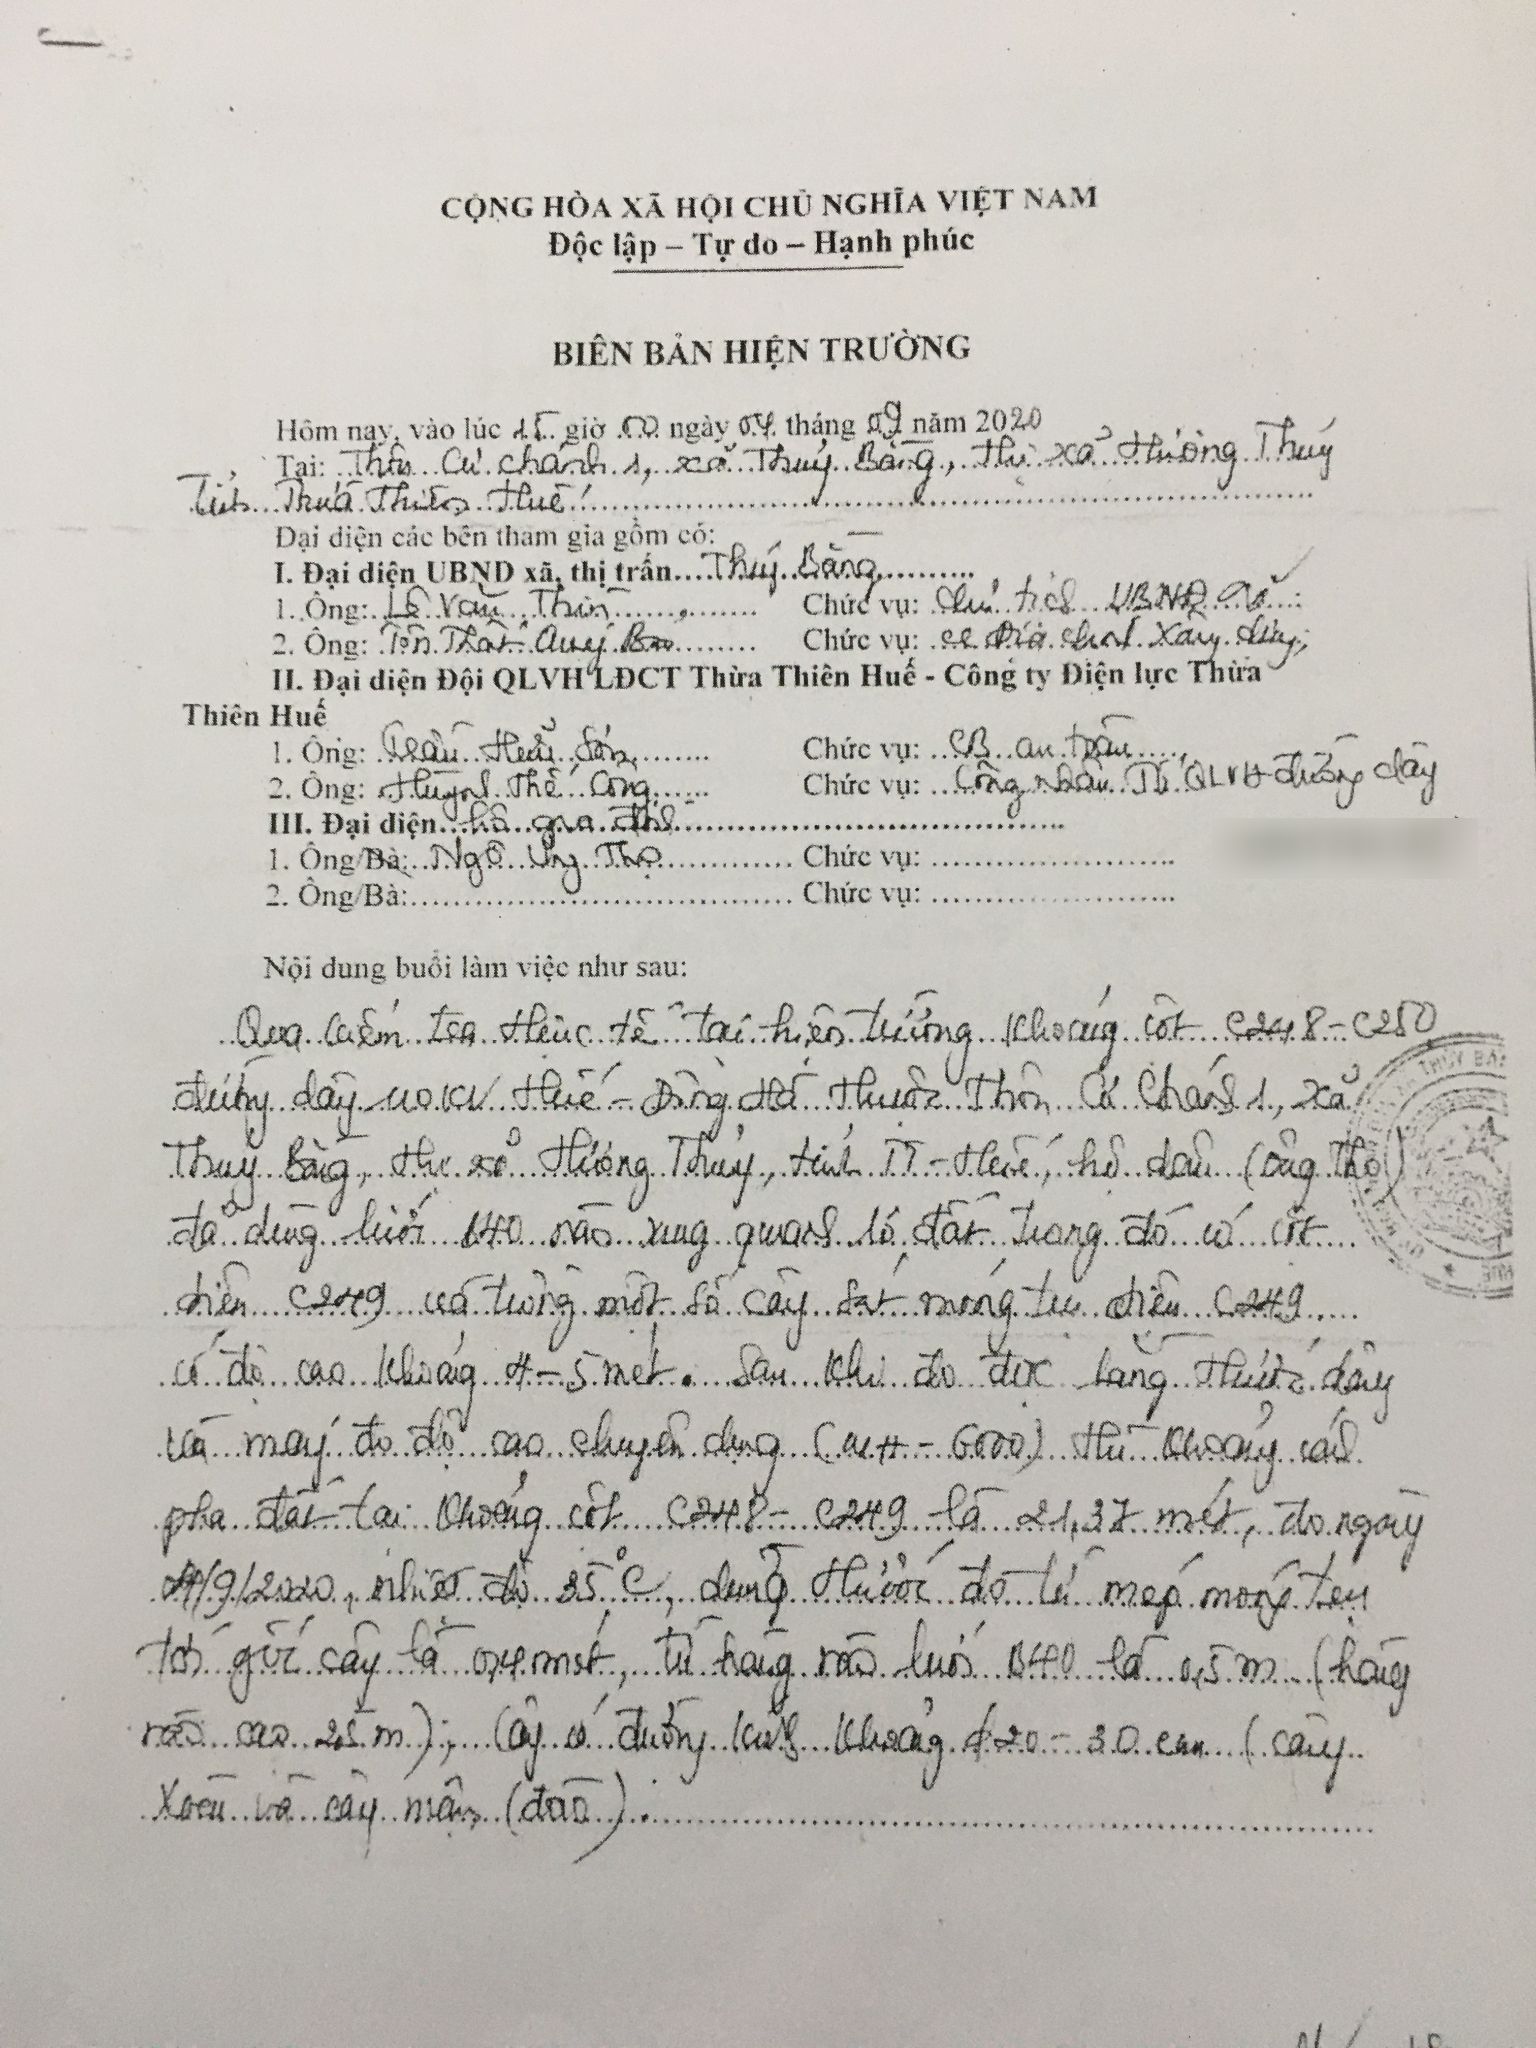 CỘNG HÒA XÃ HỘI CHỦ NGHĨA VIỆT NAM
Độc lập – Tự do – Hạnh phúc
BIÊN BẢN HIỆN TRƯỜNG
Hôm nay, vào lúc 15 giờ 00 ngày 04 tháng 09 năm 2020
Tại: Thôn Cư Chánh 1, xã Thủy Bằng, thị xã Hương Thủy
Tỉnh Thừa Thiên Huế
Đại diện các bên tham gia gồm có:
I. Đại diện UBND xã, thị trấn Thủy Bằng
1. Ông: Lê Văn Chức vụ: Chủ tịch UBND xã
2. Ông: Tôn Thất Quý Chức vụ: Địa chính Xây dựng
II. Đại diện Đội QLVH LĐCT Thừa Thiên Huế - Công ty Điện lực Thừa
Thiên Huế
1. Ông: Trần Hữu Chức vụ: CB an toàn
2. Ông: Huỳnh Thế Công Chức vụ: Công nhân QLVH đường dây
III. Đại diện hộ gia đình
1. Ông/Bà: Ngô Thọ Chức vụ:
2. Ông/Bà: Chức vụ:
Nội dung buổi làm việc như sau:
Qua kiểm tra thực tế tại hiện trường khoảng cột C248-C250
đường dây 110KV Huế - Đông Hà thuộc Thôn Cư Chánh 1, xã
Thủy Bằng, thị xã Hương Thủy, tỉnh TT-Huế, hộ dân (ông Thọ)
đã dùng lưới B40 rào xung quanh lô đất trong đó có cột
điện C249 và trồng một số cây sát móng trụ điện C249
có độ cao khoảng 4-5 mét. Sau khi đo đạc bằng thước dây
và máy đo độ cao chuyên dụng thì khoảng cách
pha đất tại khoảng cột C248-C249 là 21,37 mét, đo ngày
04/9/2020, nhiệt độ 35°C, dùng thước đo từ mép móng trụ
tới gốc cây là 0,4 mét, từ hàng rào lưới B40 là 0,5m (hàng
rào cao 2,5m); cây có đường kính khoảng 20-30 cm (cây
Xoài và cây mận (đào).